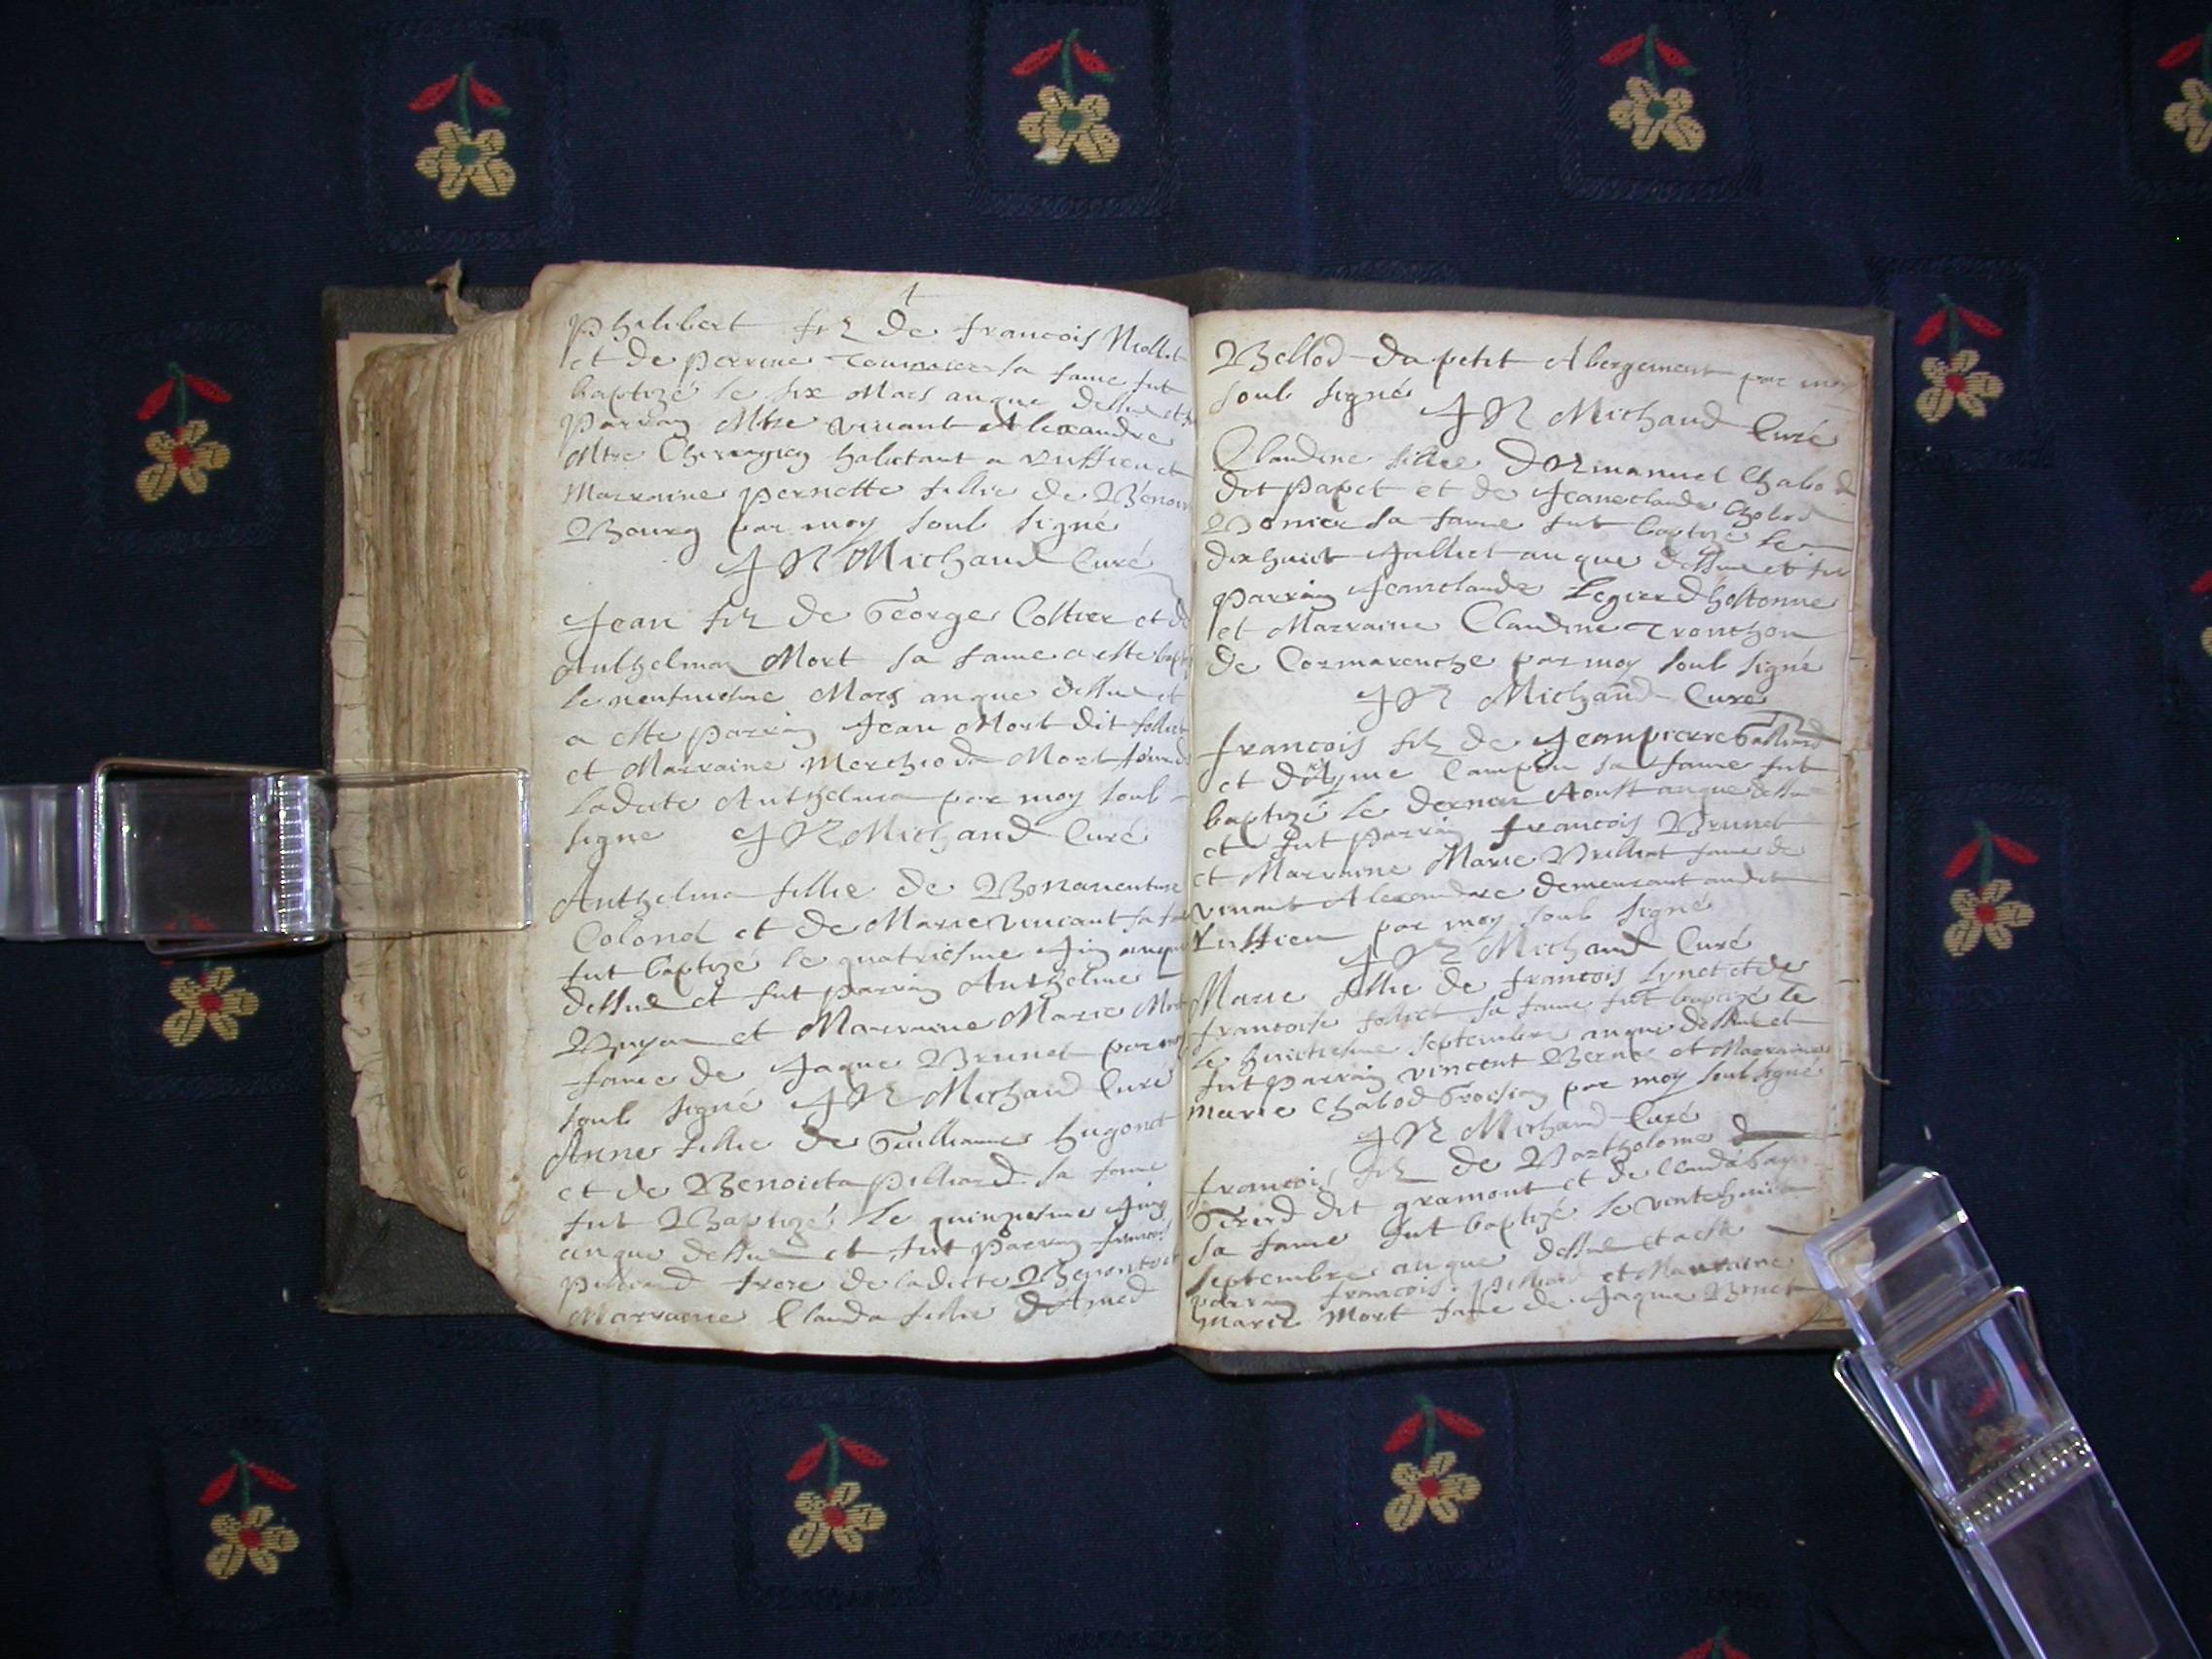 Philibert filz de francois Niollet
et de perrine sa fame fut
baptizé le six Mars anque dessus et
parrain Mtre vivant Alexandre
Mtre Chirurgien habittant a Ruffieu et
Marraine pernette fillie de Benoit
Bourg par moy soub signé
Michaud Curé
Jean filz de George Coltier et de
Anthelma Mort sa fame a este bapt
le neufuiesme Mars anque dessus et
a este parrain Jean Mort dit follict
et Marraine Mort
ladicte Anthelma par moy soub
signe Michaud Curé
Anthelma fillie de Bonauenture
Colond et de Marie vincant sa
fut baptizé le quatriesme Juin anque
dessus et fut parrain Anthelme
et Marraine Marie Mort
fame de Jaque Brunet par moy
soub signé Michaud Curé
Anne fillie de Guilliaume hugonet
et de Benoicta pilliard sa fame
fut Baptizé le quinziesme Juin
anque dessus et fut parrain francois
pilliard frere de ladicte Benoite et
Marraine Clauda fillie
Bellod du petit Abergement par moy
soub signé
Michaud Curé
Claudine fillie Chabod
dit papet et de Jeaneclauda Chabod
sa fame fut baptizé le
dixhuict Julliet anque dessus et fut
parrain Jeanclaude d'hostonne
et Marraine Claudine Tronchon
de Cormarenche par moy soub signé
Michaud Curé
francois filz de Jeanpierre
et sa fame fut
baptizé le dernier Aoust anque dessus
et fut parrain francois Brunet
et Marraine Marie fame de
vivant Alexandre demeurant audit
Ruffieu par moy soub signé
Michaud Curé
Marie fillie de francois et de
francoise follict sa fame fut baptizé le
le huictiesme septembre anque dessus et
fut parrain vincent et Marraine
marie Chabod par moy soub signé
Michaud Curé
francois filz de Bartholome
dit gramont et de
sa fame fut baptizé le vintehuict
septembre anque dessus et a este
parrain francois pilliard et Marraine
Marie Mort fame de Jaque Brunet